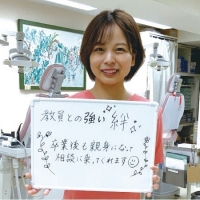 教員との強い絆
卒業後も親身になって
相談に乗ってくれます☺